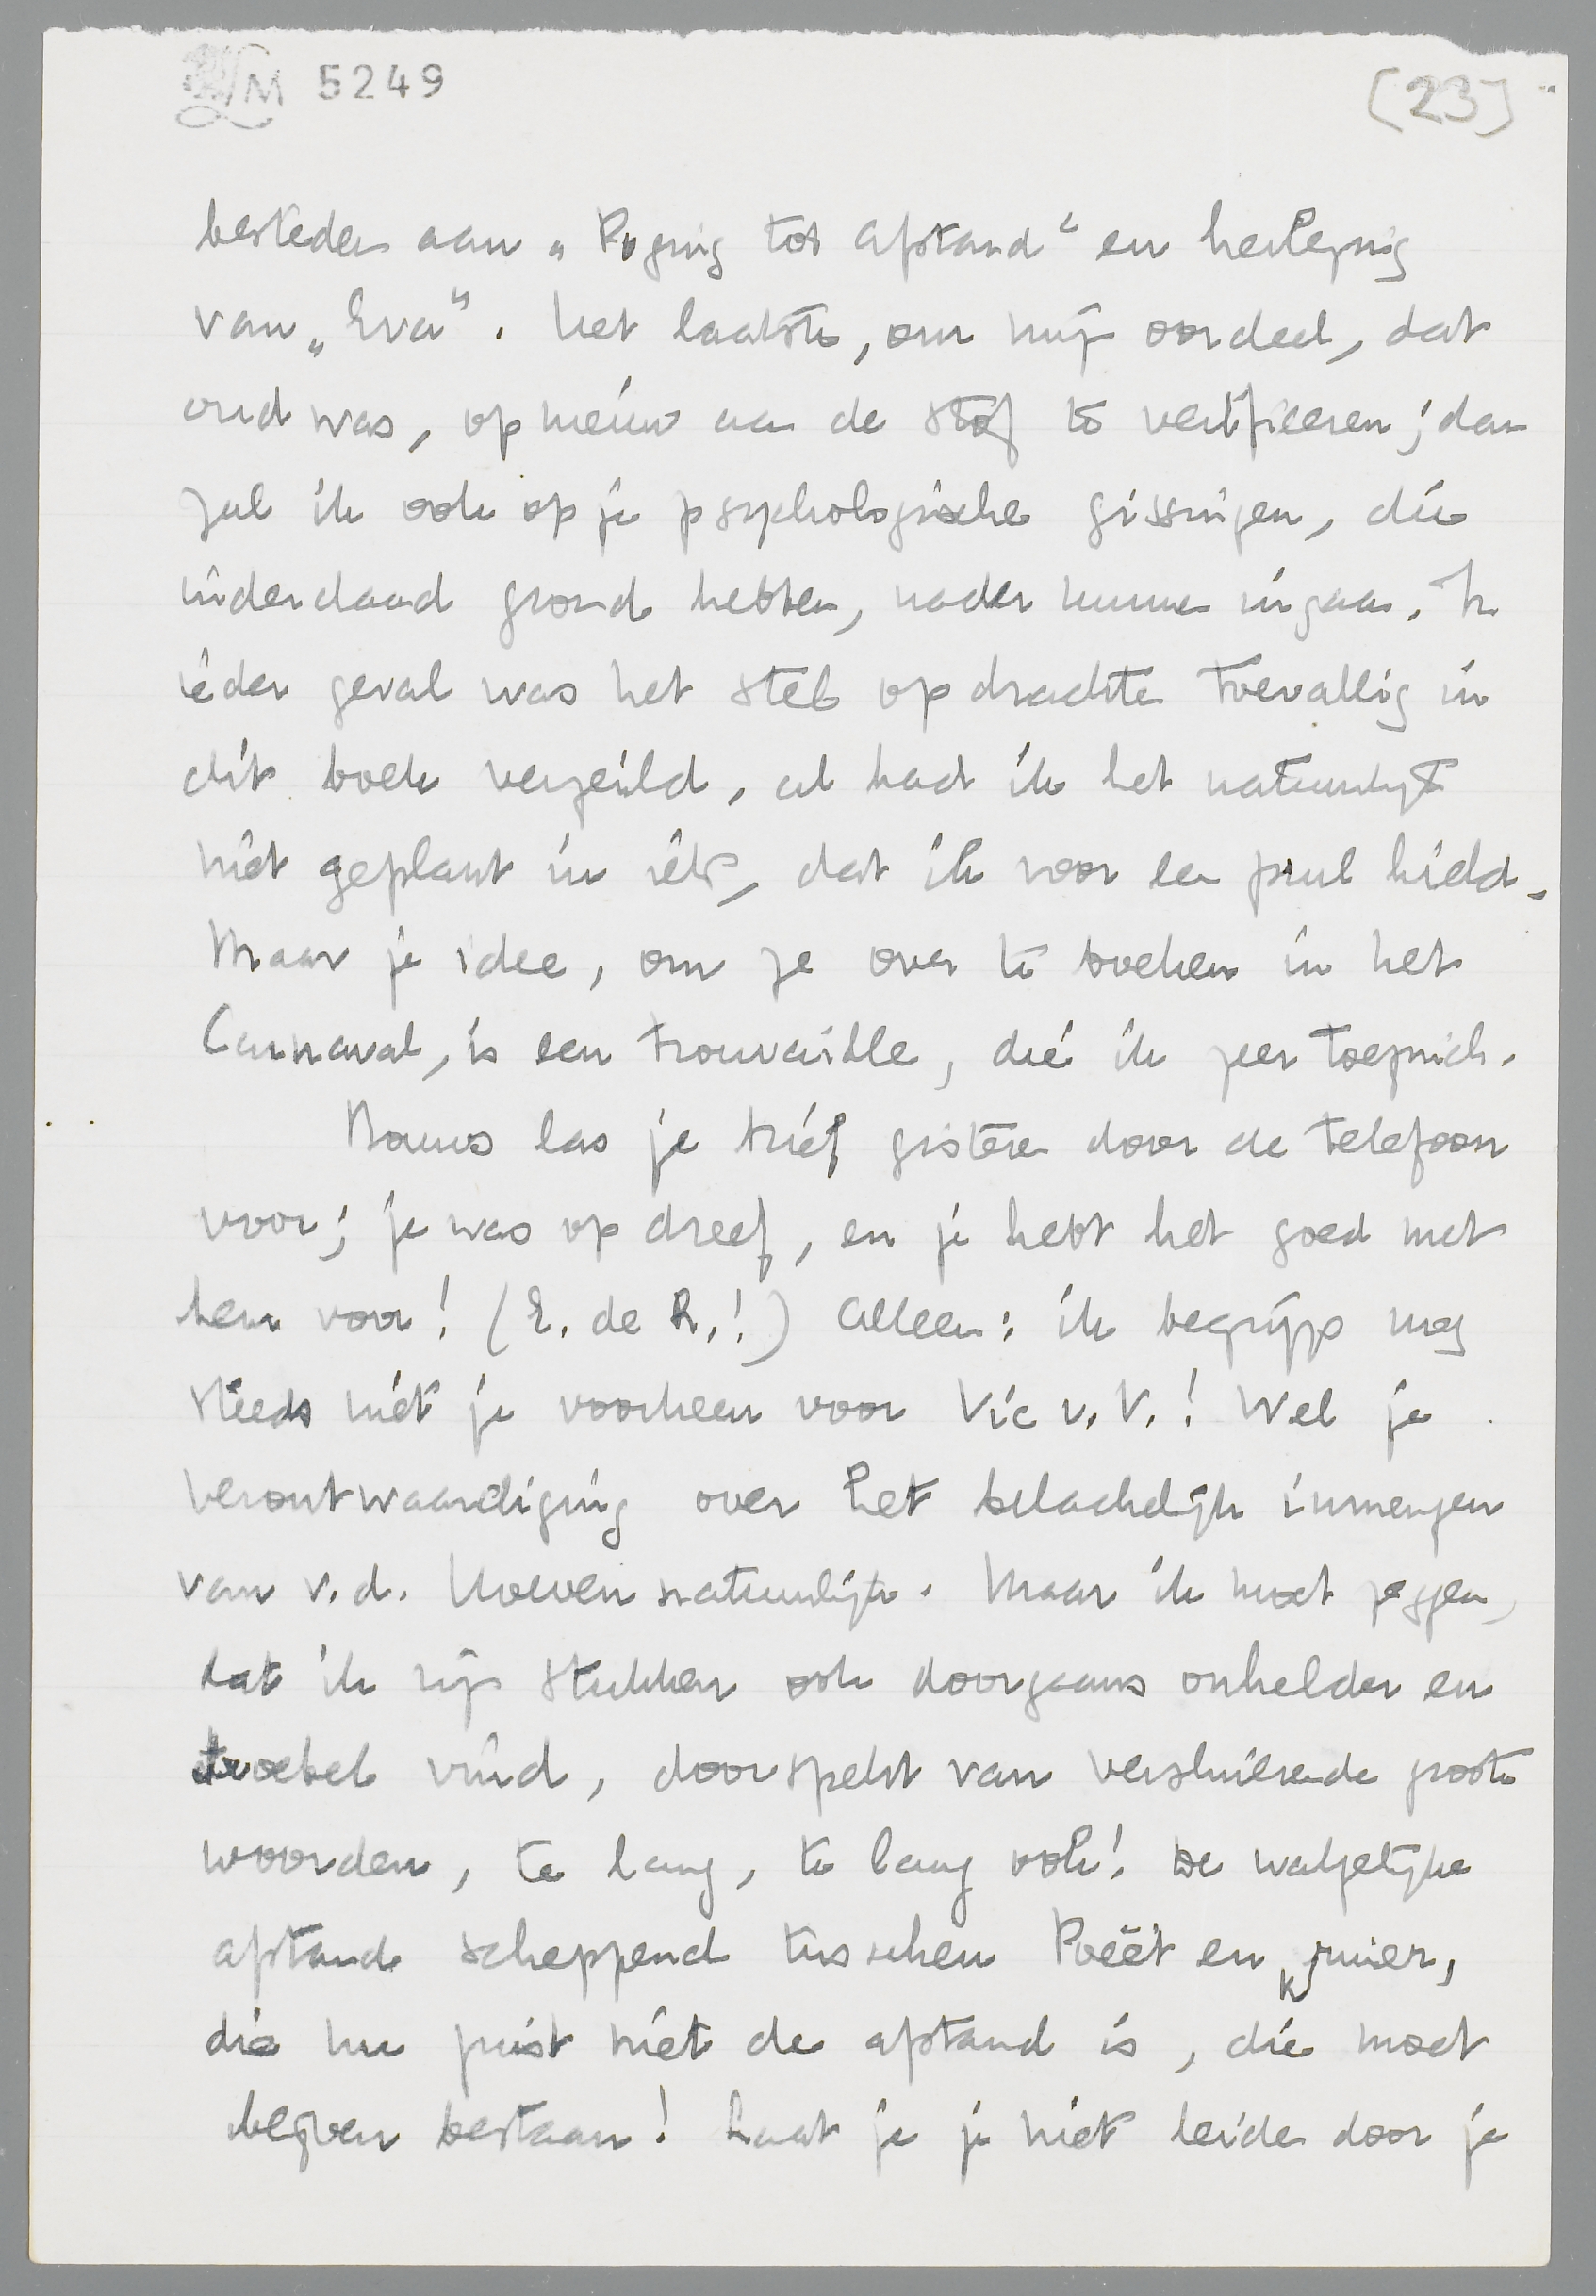 LM 5249
[23]
besteden aan „Poging tot Afstand" en herlezing
van „Eva". Het laatste, om mijn oordeel, dat
oud was, opnieuw aan de stof te verifieeren; dan
zal ik ook op je psychologische gissingen, die
inderdaad grond hebben, nader kunnen ingaan. In
ieder geval was het stel opdrachten toevallig in
dit boek verzeild, al had ik het natuurlijk
niet geplant in iets, dat ik voor een prul hield.
Maar je idee, om ze over te boeken in het
Carnaval, is een trouvaille, die ik zeer toejuich.
Nouws las je brief gisteren door de telefoon
voor; je was op dreef, en je hebt het goed met
hem voor! (E. de R.!) Alleen: ik begrijp nog
steeds niet je voorkeur voor Vic v. V.! Wel je
verontwaardiging over het belachelijk inmengen
van v.d. Hoeven natuurlijk. Maar ik moet zeggen,
dat ik zijn stukken ook doorgaans onhelder en
troebel vind, doorspekt van versluierende groote
woorden, te lang, te lang ook! De walgelijke
afstand scheppend tusschen Poëet en kruier,
die nu juist niet de afstand is, die moet
blijven bestaan! Laat je je niet leiden door je